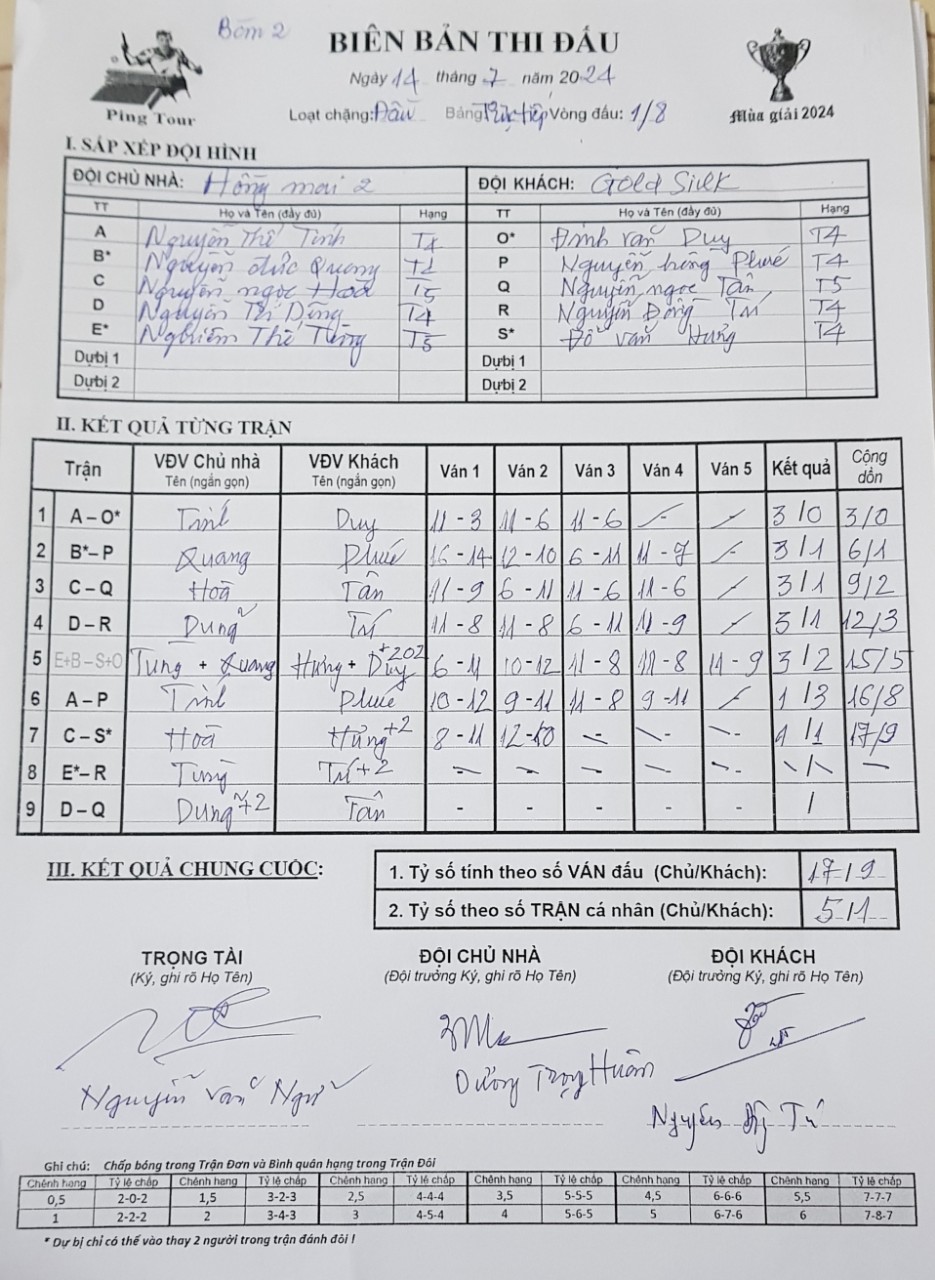 Bàn 2
BIÊN BẢN THI ĐẤU
Ngày 14 tháng 7 năm 2024
Ping Tour
Loạt chặng: Đấu Bảng Trực tiếp Vòng đấu: 1/8
Mùa giải 2024
I. SẮP XẾP ĐỘI HÌNH
ĐỘI CHỦ NHÀ: Hồng mai 2 ĐỘI KHÁCH: Gold Silk
TT Họ và Tên (đầy đủ) Hạng TT Họ và Tên (đầy đủ) Hạng
A Nguyễn Thế Tính T4 O* Đinh văn Duy T4
B* Nguyễn đức Quang T4 P Nguyễn hồng Phúc T4
C Nguyễn ngọc Hoà T5 Q Nguyễn ngọc Tân T5
D Nguyễn Trí Dũng T4 R Nguyễn Đông Trí T4
E* Nghiêm Thế Tùng T5 S* Đỗ văn Hưng T4
Dự bị 1 Dự bị 1
Dự bị 2 Dự bị 2
II. KẾT QUẢ TỪNG TRẬN
Trận VĐV Chủ nhà Tên (ngắn gọn) VĐV Khách Tên (ngắn gọn) Ván 1 Ván 2 Ván 3 Ván 4 Ván 5 Kết quả Cộng dồn
1 A – O* Tính Duy 11 - 3 11 - 6 11 - 6 - - 3/0 3/0
2 B*– P Quang Phúc 16 - 14 12 - 10 6 - 11 11 - 7 - 3/1 6/1
3 C – Q Hoà Tân 11 - 9 6 - 11 11 - 6 11 - 6 - 3/1 9/2
4 D – R Dũng Trí 11 - 8 11 - 8 6 - 11 11 - 9 - 3/1 12/3
5 E+B – S+O Tùng + Quang Hưng + Duy +202 6 - 11 10 - 12 11 - 8 11 - 8 11 - 9 3/2 15/5
6 A – P Tính Phúc 10 - 12 9 - 11 11 - 8 9 - 11 - 1/3 16/8
7 C – S* Hoà Hưng +2 8 - 11 12 - 10 - - - 1/1 17/9
8 E*– R Tùng Trí +2 - - - - - / -
9 D – Q Dũng +2 Tân - - - - - /
III. KẾT QUẢ CHUNG CUỘC:
1. Tỷ số tính theo số VÁN đấu (Chủ/Khách): 17/9
2. Tỷ số theo số TRẬN cá nhân (Chủ/Khách): 5/1
TRỌNG TÀI ĐỘI CHỦ NHÀ ĐỘI KHÁCH
(Ký, ghi rõ Họ Tên) (Đội trưởng Ký, ghi rõ Họ Tên) (Đội trưởng Ký, ghi rõ Họ Tên)
Nguyễn Văn Dương Trọng Huân Nguyễn
Ghi chú: Chấp bóng trong Trận Đơn và Bình quân hạng trong Trận Đôi
Chênh hạng Tỷ lệ chấp Chênh hạng Tỷ lệ chấp Chênh hạng Tỷ lệ chấp Chênh hạng Tỷ lệ chấp Chênh hạng Tỷ lệ chấp Chênh hạng Tỷ lệ chấp
0,5 2-0-2 1,5 3-2-3 2,5 4-4-4 3,5 5-5-5 4,5 6-6-6 5,5 7-7-7
1 2-2-2 2 3-4-3 3 4-5-4 4 5-6-5 5 6-7-6 6 7-8-7
* Dự bị chỉ có thể vào thay 2 người trong trận đánh đôi !